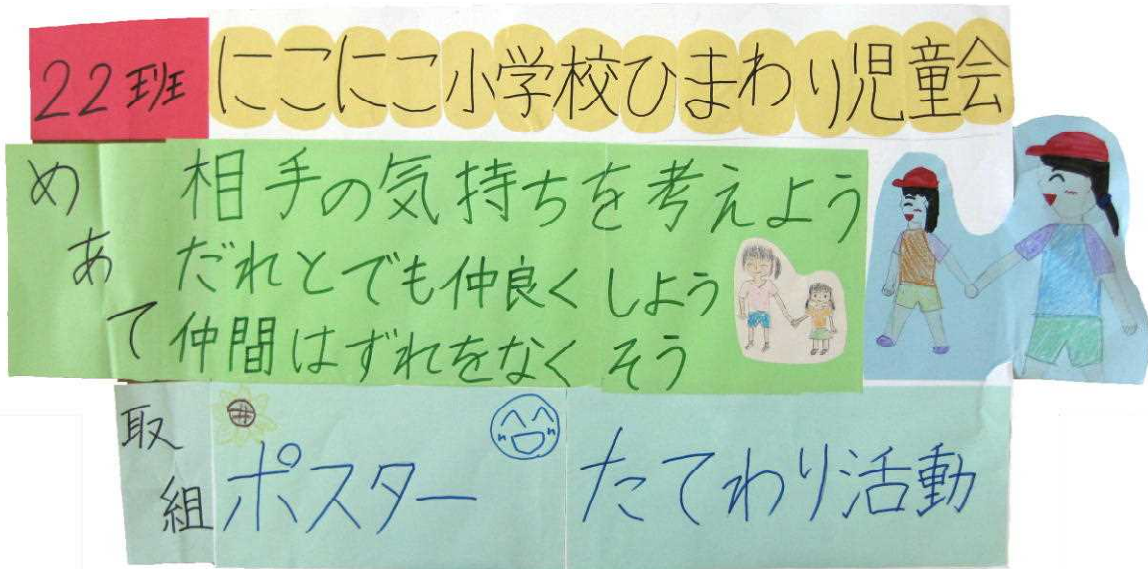 22班 にこにこ小学校ひまわり児童会
めあて
相手の気持ちを考えよう
だれとでも仲良くしよう
仲間はずれをなくそう
取組
ポスター たてわり活動